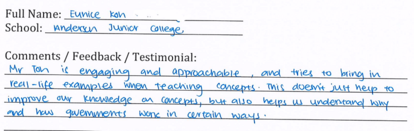 Full Name: Eunice Koh
School: Anderson Junior College.
Comments / Feedback / Testimonial:
Mr Tan is engaging and approachable, and tries to bring in
real-life examples when teaching concepts. This doesn't just help to
improve our knowledge on concepts, but also helps us understand why
and how governments work in certain ways.